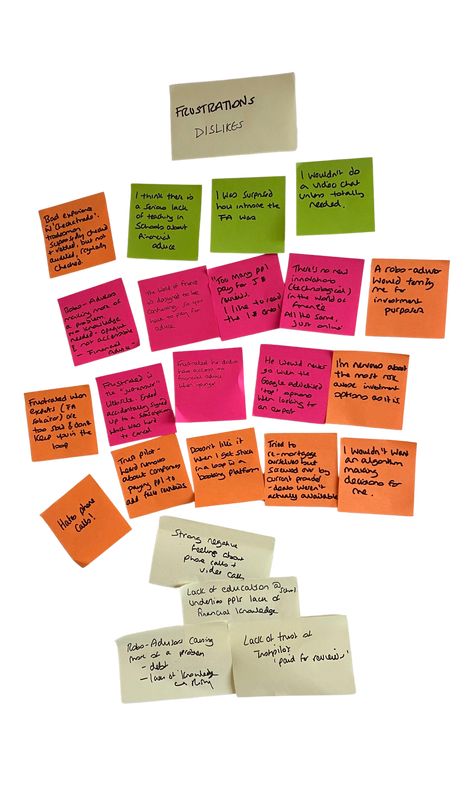 FRUSTRATIONS
DISLIKES
Bad experience
tradesman
supposedly checked
+ vetted, but not
audited, regularly
checked
I think there is
a serious lack
of teaching in
schools about
financial
advice
I was surprised
how intrusive the
FA was
I wouldn't do
a video chat
unless totally
needed.
Robo-Advisors
making more of
a problem
knowledge
needed - opaque
+ not accessible
- Financial
Advice -
The world of finance
is designed to be
confusing so you
have to pay for
advice
"Too many ppl
pay for 5*
reviews.
I like to read
the 1* ones"
There's no new
innovations
(technological)
in the world of
finance
All the same.
Just online
A robo-advisor
would terrify
me for
investment
purposes
Frustrated when
experts (FA
solicitor) are
too slow & don't
keep you in the
loop
Frustrated
website. Ended
accidentally signed
up to a subscription
which was hard
to cancel
Frustrated he didn't
have access to
financial advice
when younger
He would never
go with the
Google advertised
'top' options
when looking for
an expert
I'm nervous about
the most risk
averse investment
options as it is
Hates phone
calls!
Trust pilot -
heard rumours
about companies
paying ppl to
add fake reviews
Doesn't like it
when I get stuck
in a loop in a
booking platform
Tried to
re-mortgage
ourselves but
screwed over by
current provider
- deals weren't
actually available
I wouldn't want
an algorithm
making
decisions for
me.
Strong negative
feeling about
phone calls +
video calls
Lack of education @ school
underlies ppls lack of
financial knowledge
Robo-Advisors causing
more of a problem
- debt
- lack of knowledge
Lack of trust of
Trustpilot
'paid for reviews'